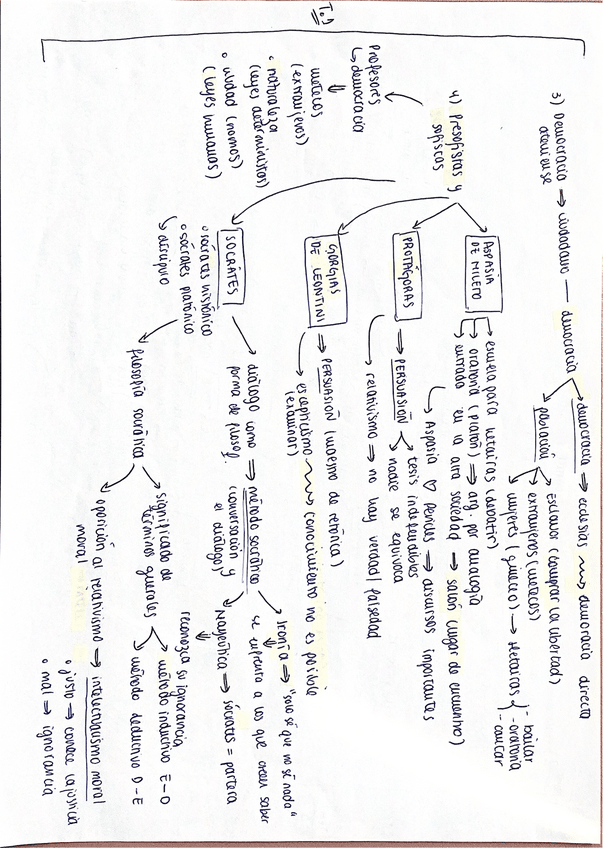 T.1
3) Democracia ateniense ⇒ ciudadano — democracia
democracia ⇒ ecclesias ⇝ democracia directa
población
Esclavos (comprar la libertad)
extranjeros (metecos)
mujeres (gineceo) → Hetairas
- bailar
- oratoria
4) Presofistas y
sofistas
Profesores
↳ democracia
⇓
metecos
(extranjeros)
• naturaleza
(leyes deterministas)
• ciudad (nomos)
(leyes humanas)
ASPASIA
DE MILETO
escuela para hetairas (debatir)
oratoria (platón) ⇒ arg. por analogía
entrada en la alta sociedad ⇒ salón (lugar de encuentro)
Aspasia ♡ Pericles ⇒ discursos importantes
PROTÁGORAS
⇒ PERSUASIÓN
tesis indefendibles
nadie se equivoca
relativismo ⇒ no hay verdad/falsedad
GORGIAS
DE LEONTINI
⇒ PERSUASIÓN (maestro de retórica)
escepticismo ⇝ conocimiento no es posible
(examinar)
SÓCRATES
• sócrates histórico
• sócrates platónico
↳ discípulo
diálogo como
forma de filosof.
⇒ método socrático
(conversación y
el diálogo)
Ironía ⇒ "solo sé que no sé nada"
⇓
se enfrenta a los que creen saber
Mayeútica ⇒ sócrates = partera
⇓
reconozca su ignorancia
filosofía socrática
significado de
términos generales
método inductivo E-D
método deductivo D-E
oposición al relativismo
moral
⇒ intelectualismo moral
• justo ⇒ conoce la justicia
• mal ⇒ ignorancia